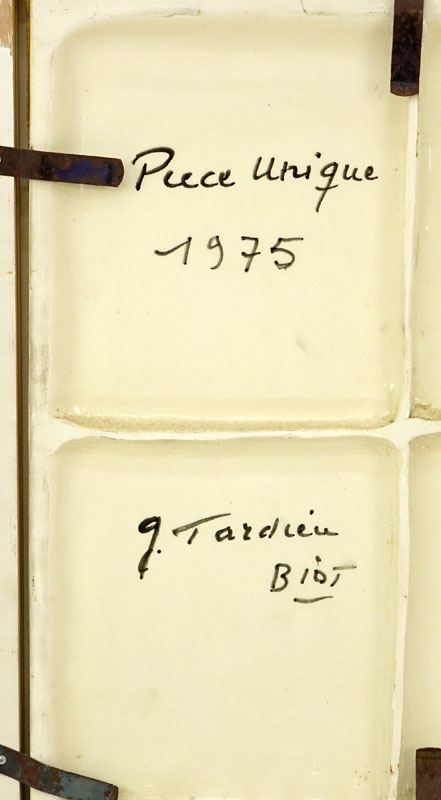 Piece Unique
1975
g. Tardieu
Biot